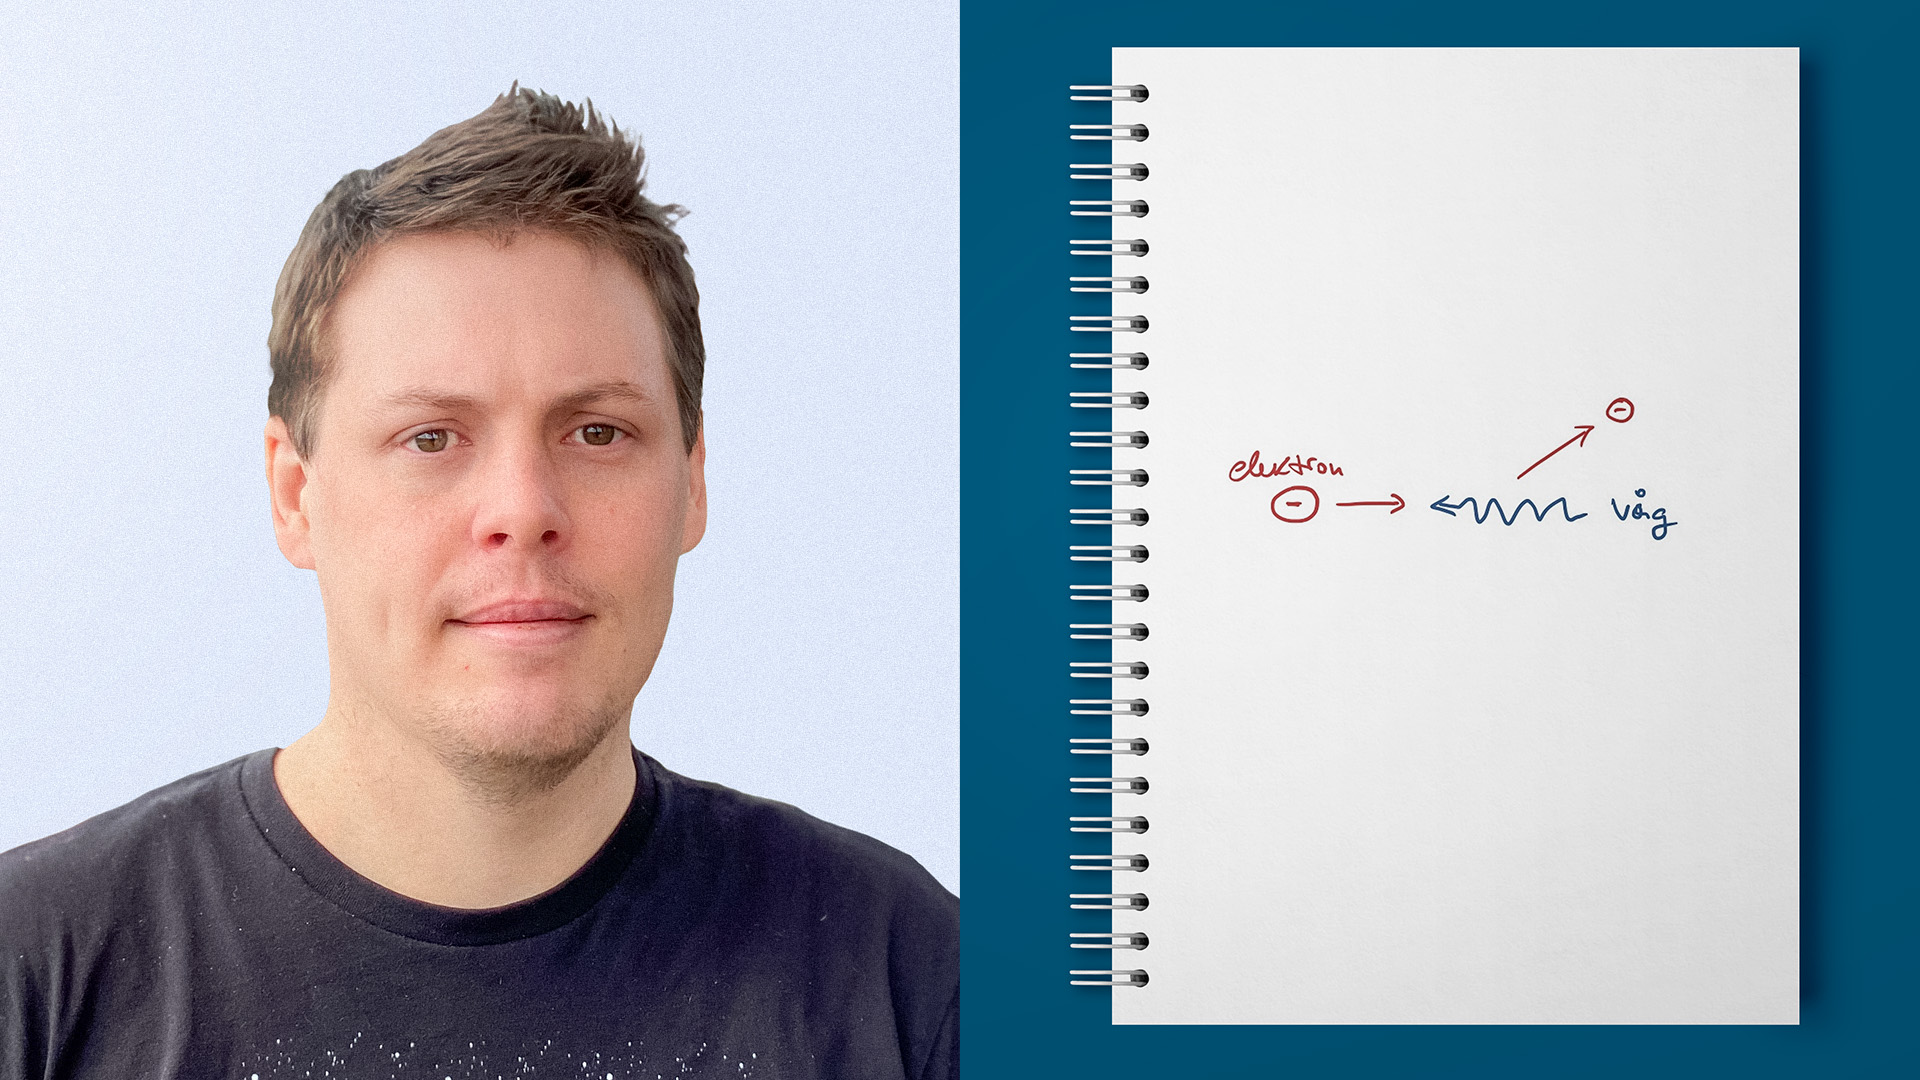 elektron
våg